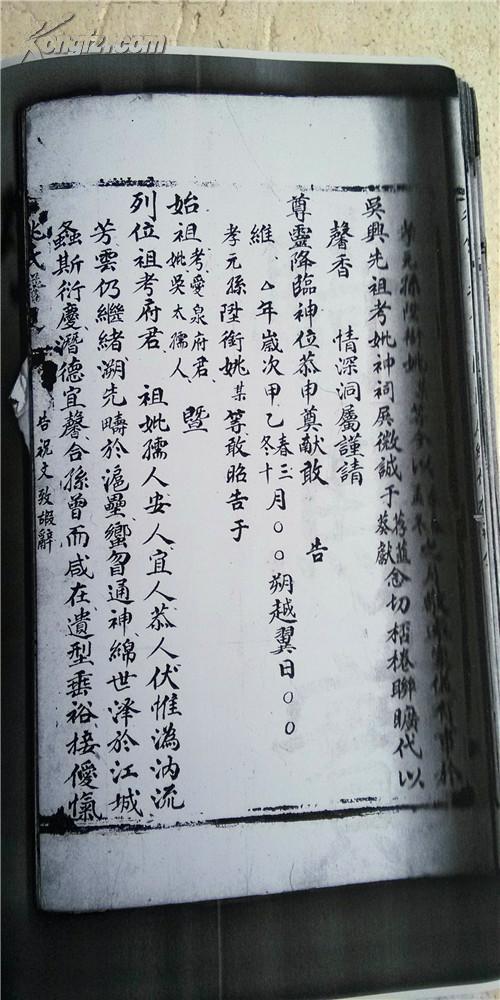 Kongfz.com
孝元孫陞銜姚
吳興先祖考妣神祠展微誠于荐藻葵獻念切桮棬聯曠代以
馨香 情深洞屬謹請
尊靈降臨神位恭申奠献敢 告
維 △年歲次甲乙春三冬十月〇〇朔越翼日〇〇
孝元孫陞銜姚某等敢昭告于
始祖考愛泉府君妣吳太孺人 暨
列位祖考府君 祖妣孺人安人宜人恭人伏惟溈汭流
芳雲仍繼緒溯先疇於滬壘蠁曶通神綿世泽於江城
螽斯衍慶潛德宜馨合孫曾而咸在遺型垂裕接僾愾
姚氏
告祝文致嘏辭